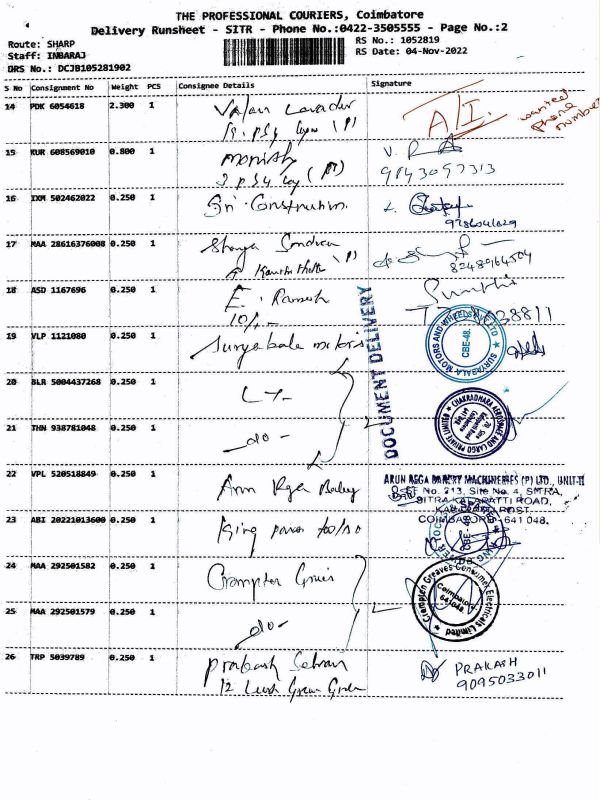 THE PROFESSIONAL COURIERS, Coimbatore
Delivery Runsheet - SITR - Phone No.:0422-3505555 - Page No.:2
Route: SHARP
RS No.: 1052819
Staff: INBARAJ
RS Date: 04-Nov-2022
DRS No.: DCJB105281902
S No Consignment No Weight PCS Consignee Details Signature
14 PDK 6054618 2.300 1
A/I. wanted phone number
15 KUR 608569010 0.800 1 monish
9843097313
16 IXM 502462022 0.250 1 Sri Construction.
17 MAA 28616376008 0.250 1
8248964504
18 ASD 1167696 0.250 1 E. Ramesh
Sumathi
19 VLP 1121080 0.250 1 Suryabala motors
DOCUMENT DELIVERY
SURYABALA MOTORS AND WHEELS (P) LTD
CBE-48.
20 BLR 5004437268 0.250 1
CHAKRADHARA AEROSPACE AND CARGO PRIVATE LIMITED
21 THN 938781048 0.250 1 -do-
22 VPL 520518849 0.250 1 Arun Rega Bakery
ARUN REGA BAKERY MACHINERIES (P) LTD., UNIT-II
S.F. No. 213, Site No. 4, SITRA,
SITRA KALAPATTI ROAD,
KALAPATTI POST,
COIMBATORE - 641 048.
23 ABI 20221013600 0.250 1 King power tools
CBE-48
24 MAA 292501582 0.250 1 Crompton Greaves
Crompton Greaves Consumer Electricals Limited
Coimbatore
641048.
25 MAA 292501579 0.250 1 -do-
26 TRP 5039789 0.250 1 Prakash Selvan
12
PRAKASH
9095033011